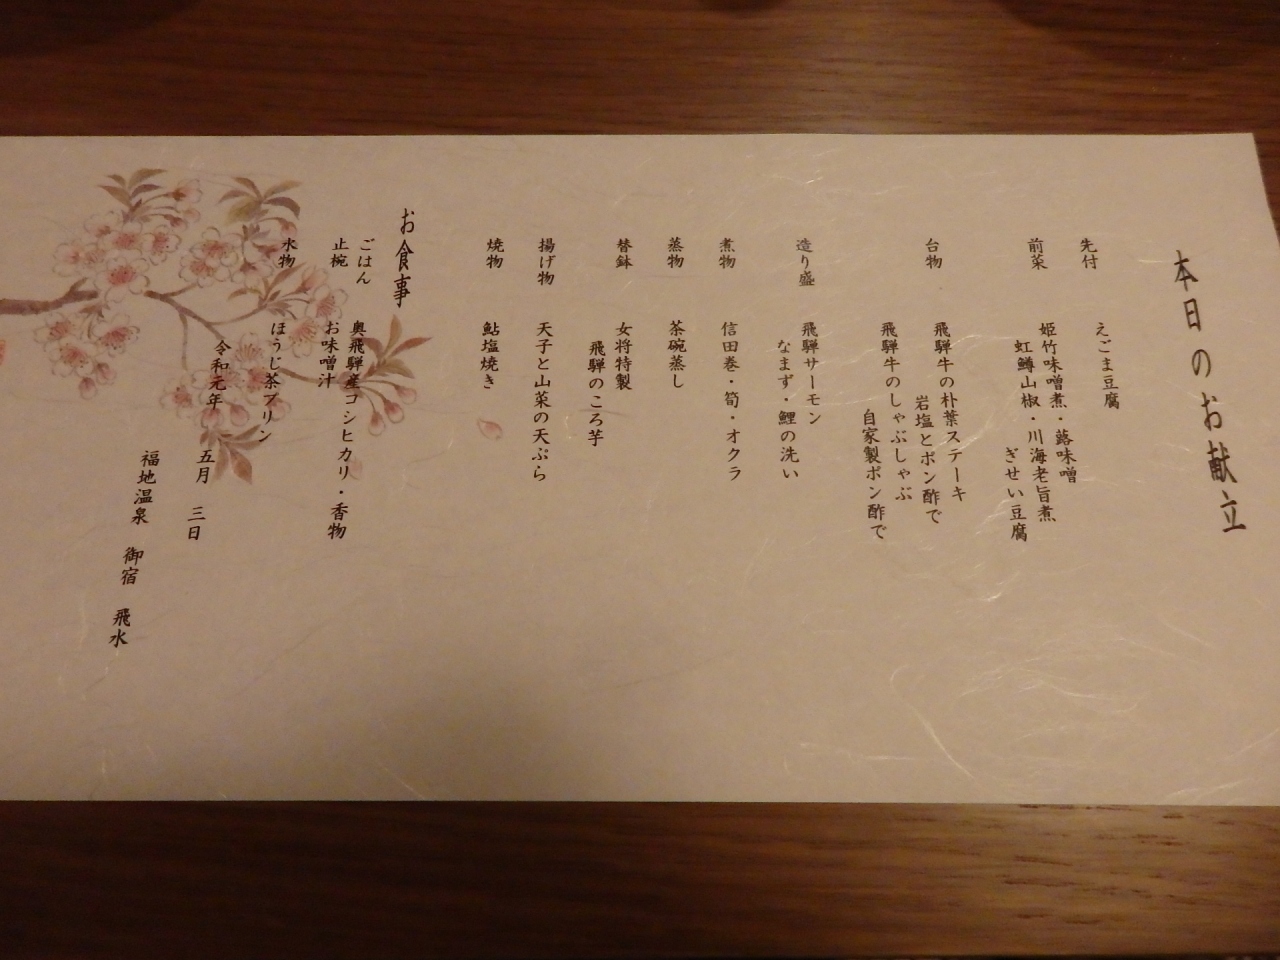 本日のお献立
先付 えごま豆腐
前菜 姫竹味噌煮・蕗味噌
虹鱒山椒・川海老旨煮
ぎせい豆腐
台物 飛騨牛の朴葉ステーキ
岩塩とポン酢で
飛騨牛のしゃぶしゃぶ
自家製ポン酢で
造り盛 飛騨サーモン
なまず・鯉の洗い
煮物 信田巻・筍・オクラ
蒸物 茶碗蒸し
替鉢 女将特製
飛騨のころ芋
揚げ物 天子と山菜の天ぷら
焼物 鮎塩焼き
お食事
ごはん 奥飛騨産コシヒカリ・香物
止椀 お味噌汁
水物 ほうじ茶プリン
令和元年 五月 三日
福地温泉 御宿 飛水